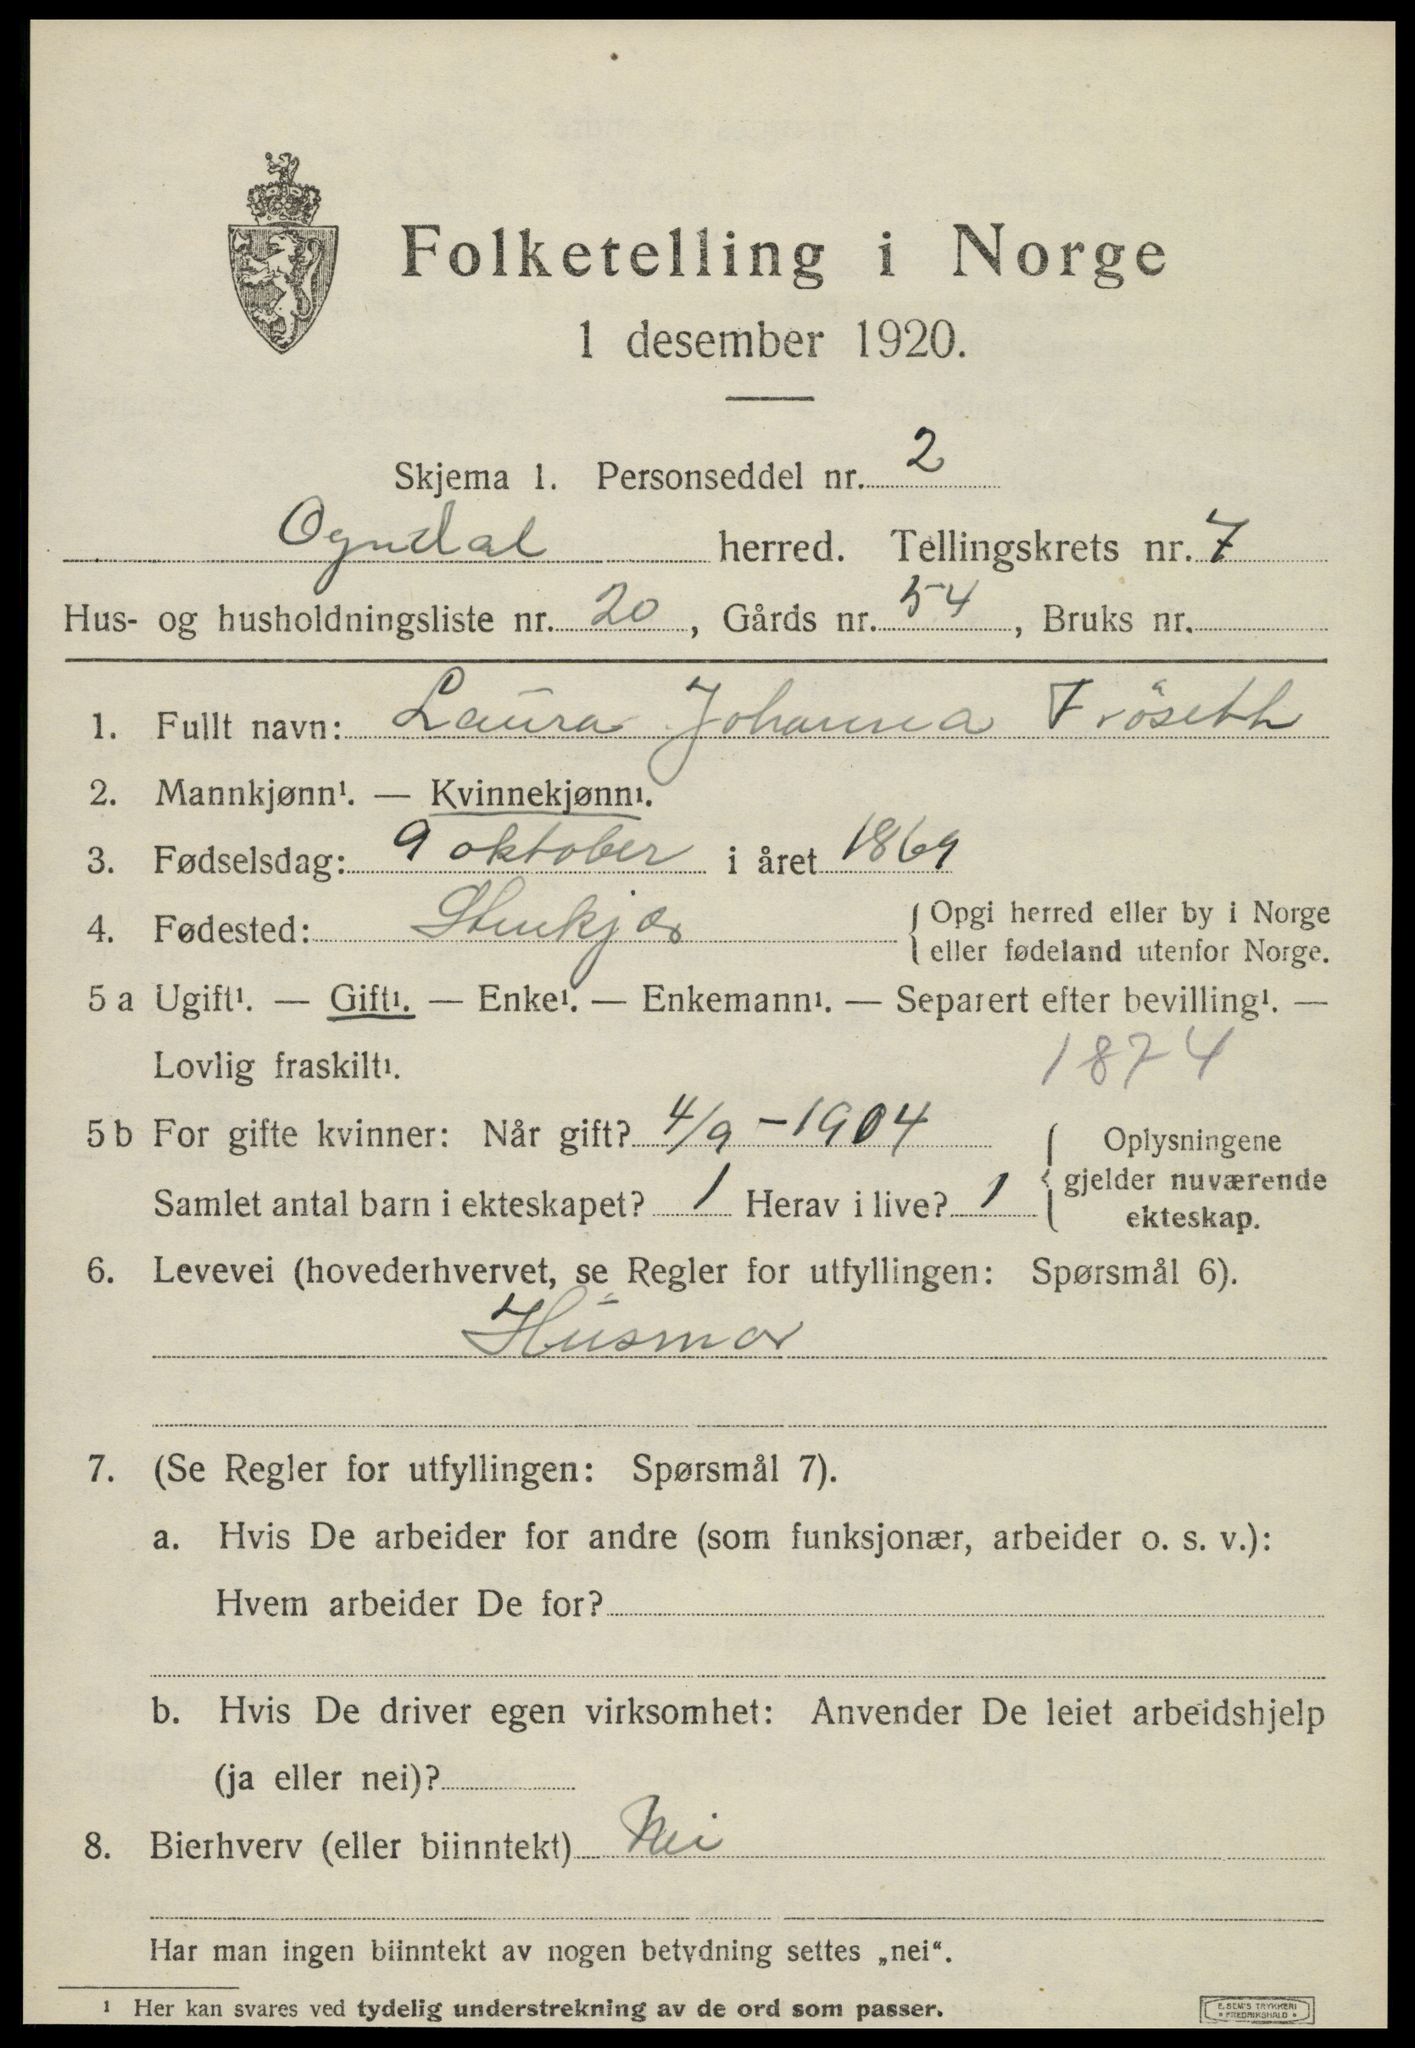 Folketelling i Norge
1 desember 1920.
Skjema 1. Personseddel nr. 2
Ogndal herred. Tellingskrets nr. 7
Hus- og husholdningsliste nr. 20, Gårds nr. 54, Bruks nr.
1. Fullt navn: Laura Johanna Fröseth
2. Mannkjønn¹. — Kvinnekjønn¹.
3. Fødselsdag: 9 oktober i året 1869
4. Fødested: Stenkjær { Opgi herred eller by i Norge
eller fødeland utenfor Norge.
5 a Ugift¹. — Gift¹. — Enke¹. — Enkemann¹. — Separert efter bevilling¹. —
Lovlig fraskilt¹. 1874
5 b For gifte kvinner: Når gift? 4/9 - 1904
Samlet antal barn i ekteskapet? 1 Herav i live? 1
{ Oplysningene
gjelder nuværende
ekteskap.
6. Levevei (hovederhvervet, se Regler for utfyllingen: Spørsmål 6).
Husmor
7. (Se Regler for utfyllingen: Spørsmål 7).
a. Hvis De arbeider for andre (som funksjonær, arbeider o. s. v.):
Hvem arbeider De for?
b. Hvis De driver egen virksomhet: Anvender De leiet arbeidshjelp
(ja eller nei)?
8. Bierhverv (eller biinntekt) Nei
Har man ingen biinntekt av nogen betydning settes „nei“.
¹ Her kan svares ved tydelig understrekning av de ord som passer.
E. SEM'S TRYKKERI
* FREDRIKSHALD *